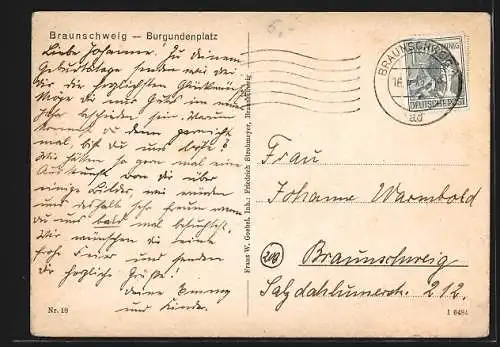 Braunschweig — Burgundenplatz
Liebe Johanne! Zu deinem
Geburtstage senden wir dir
die herzlichsten Glückwünsche
Möge dir nur Gutes im neuen
Jahr beschieden sein. Warum
kommst du denn gar nicht
mal, bist du uns böse?
Wir hätten so gern mal eine
Auskunft von dir über
einige Bilder, wir würden
uns deshalb sehr freuen wenn
du uns bald mal besuchst.
Wir wünschen dir eine
frohe Feier und senden
dir herzliche Grüße!
Deine Emmy
und Kinder.
Nr. 18
Franz W. Goebel, Inh.: Friedrich Strohmeyer, Braunschweig
6,-
BRAUNSCHWEIG
16
ad
PFENNIG
DEUTSCHE POST
Frau
Johanne Warmbold
(20b)
Braunschweig
Salzdahlumerstr. 212.
I 6484